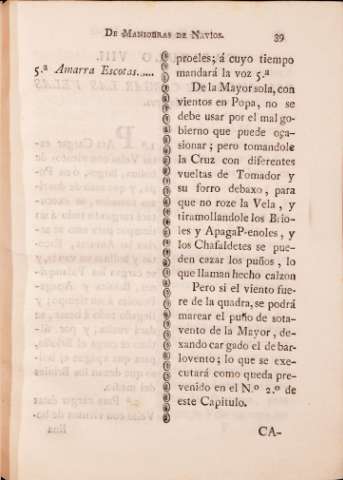 DE MANIOBRAS DE NAVÍOS. 39
5.ª Amarra Escotas.....
proeles; á cuyo tiempo
mandará la voz 5.ª
De la Mayor sola, con
vientos en Popa, no se
debe usar por el mal go-
bierno que puede oca-
sionar; pero tomandole
la Cruz con diferentes
vueltas de Tomador y
su forro debaxo, para
que no roze la Vela, y
tiramollandole los Brio-
les y ApagaP-enoles, y
los Chafaldetes se pue-
den cazar los puños, lo
que llaman hecho calzon
Pero si el viento fue-
re de la quadra, se podrá
marear el puño de sota-
vento de la Mayor, de-
xando cargado el de bar-
lovento; lo que se exe-
cutará como queda pre-
venido en el N.º 2.º de
este Capitulo.
CA-